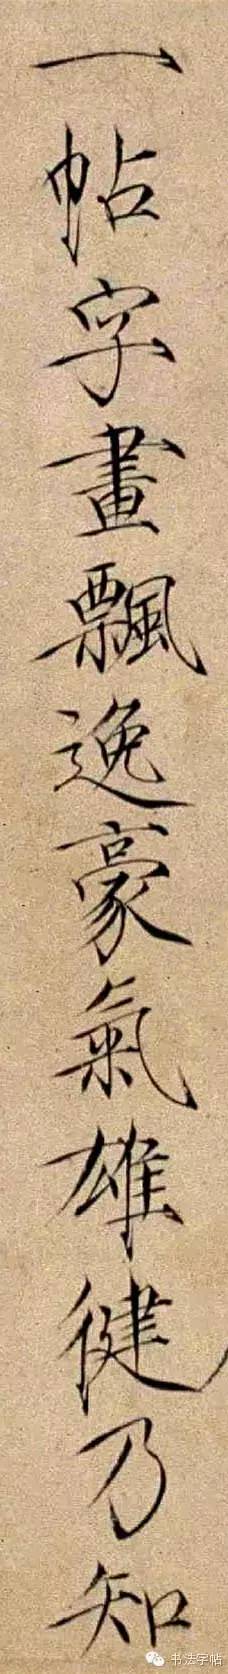 一帖字畫飄逸豪氣雄健乃知
书法字帖